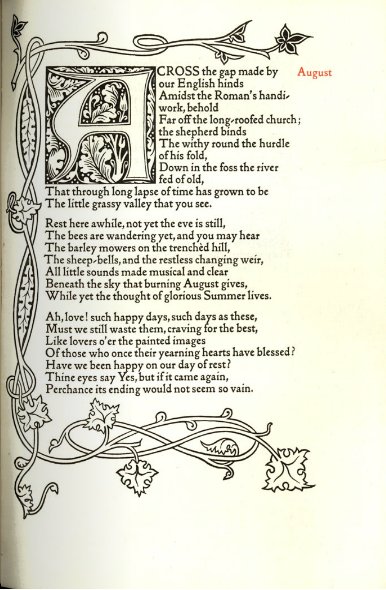 ACROSS the gap made by
August
our English hinds
Amidst the Roman's handi-
work, behold
Far off the long-roofed church;
the shepherd binds
The withy round the hurdle
of his fold,
Down in the foss the river
fed of old,
That through long lapse of time has grown to be
The little grassy valley that you see.
Rest here awhile, not yet the eve is still,
The bees are wandering yet, and you may hear
The barley mowers on the trenchèd hill,
The sheep-bells, and the restless changing weir,
All little sounds made musical and clear
Beneath the sky that burning August gives,
While yet the thought of glorious Summer lives.
Ah, love! such happy days, such days as these,
Must we still waste them, craving for the best,
Like lovers o'er the painted images
Of those who once their yearning hearts have blessed?
Have we been happy on our day of rest?
Thine eyes say Yes, but if it came again,
Perchance its ending would not seem so vain.